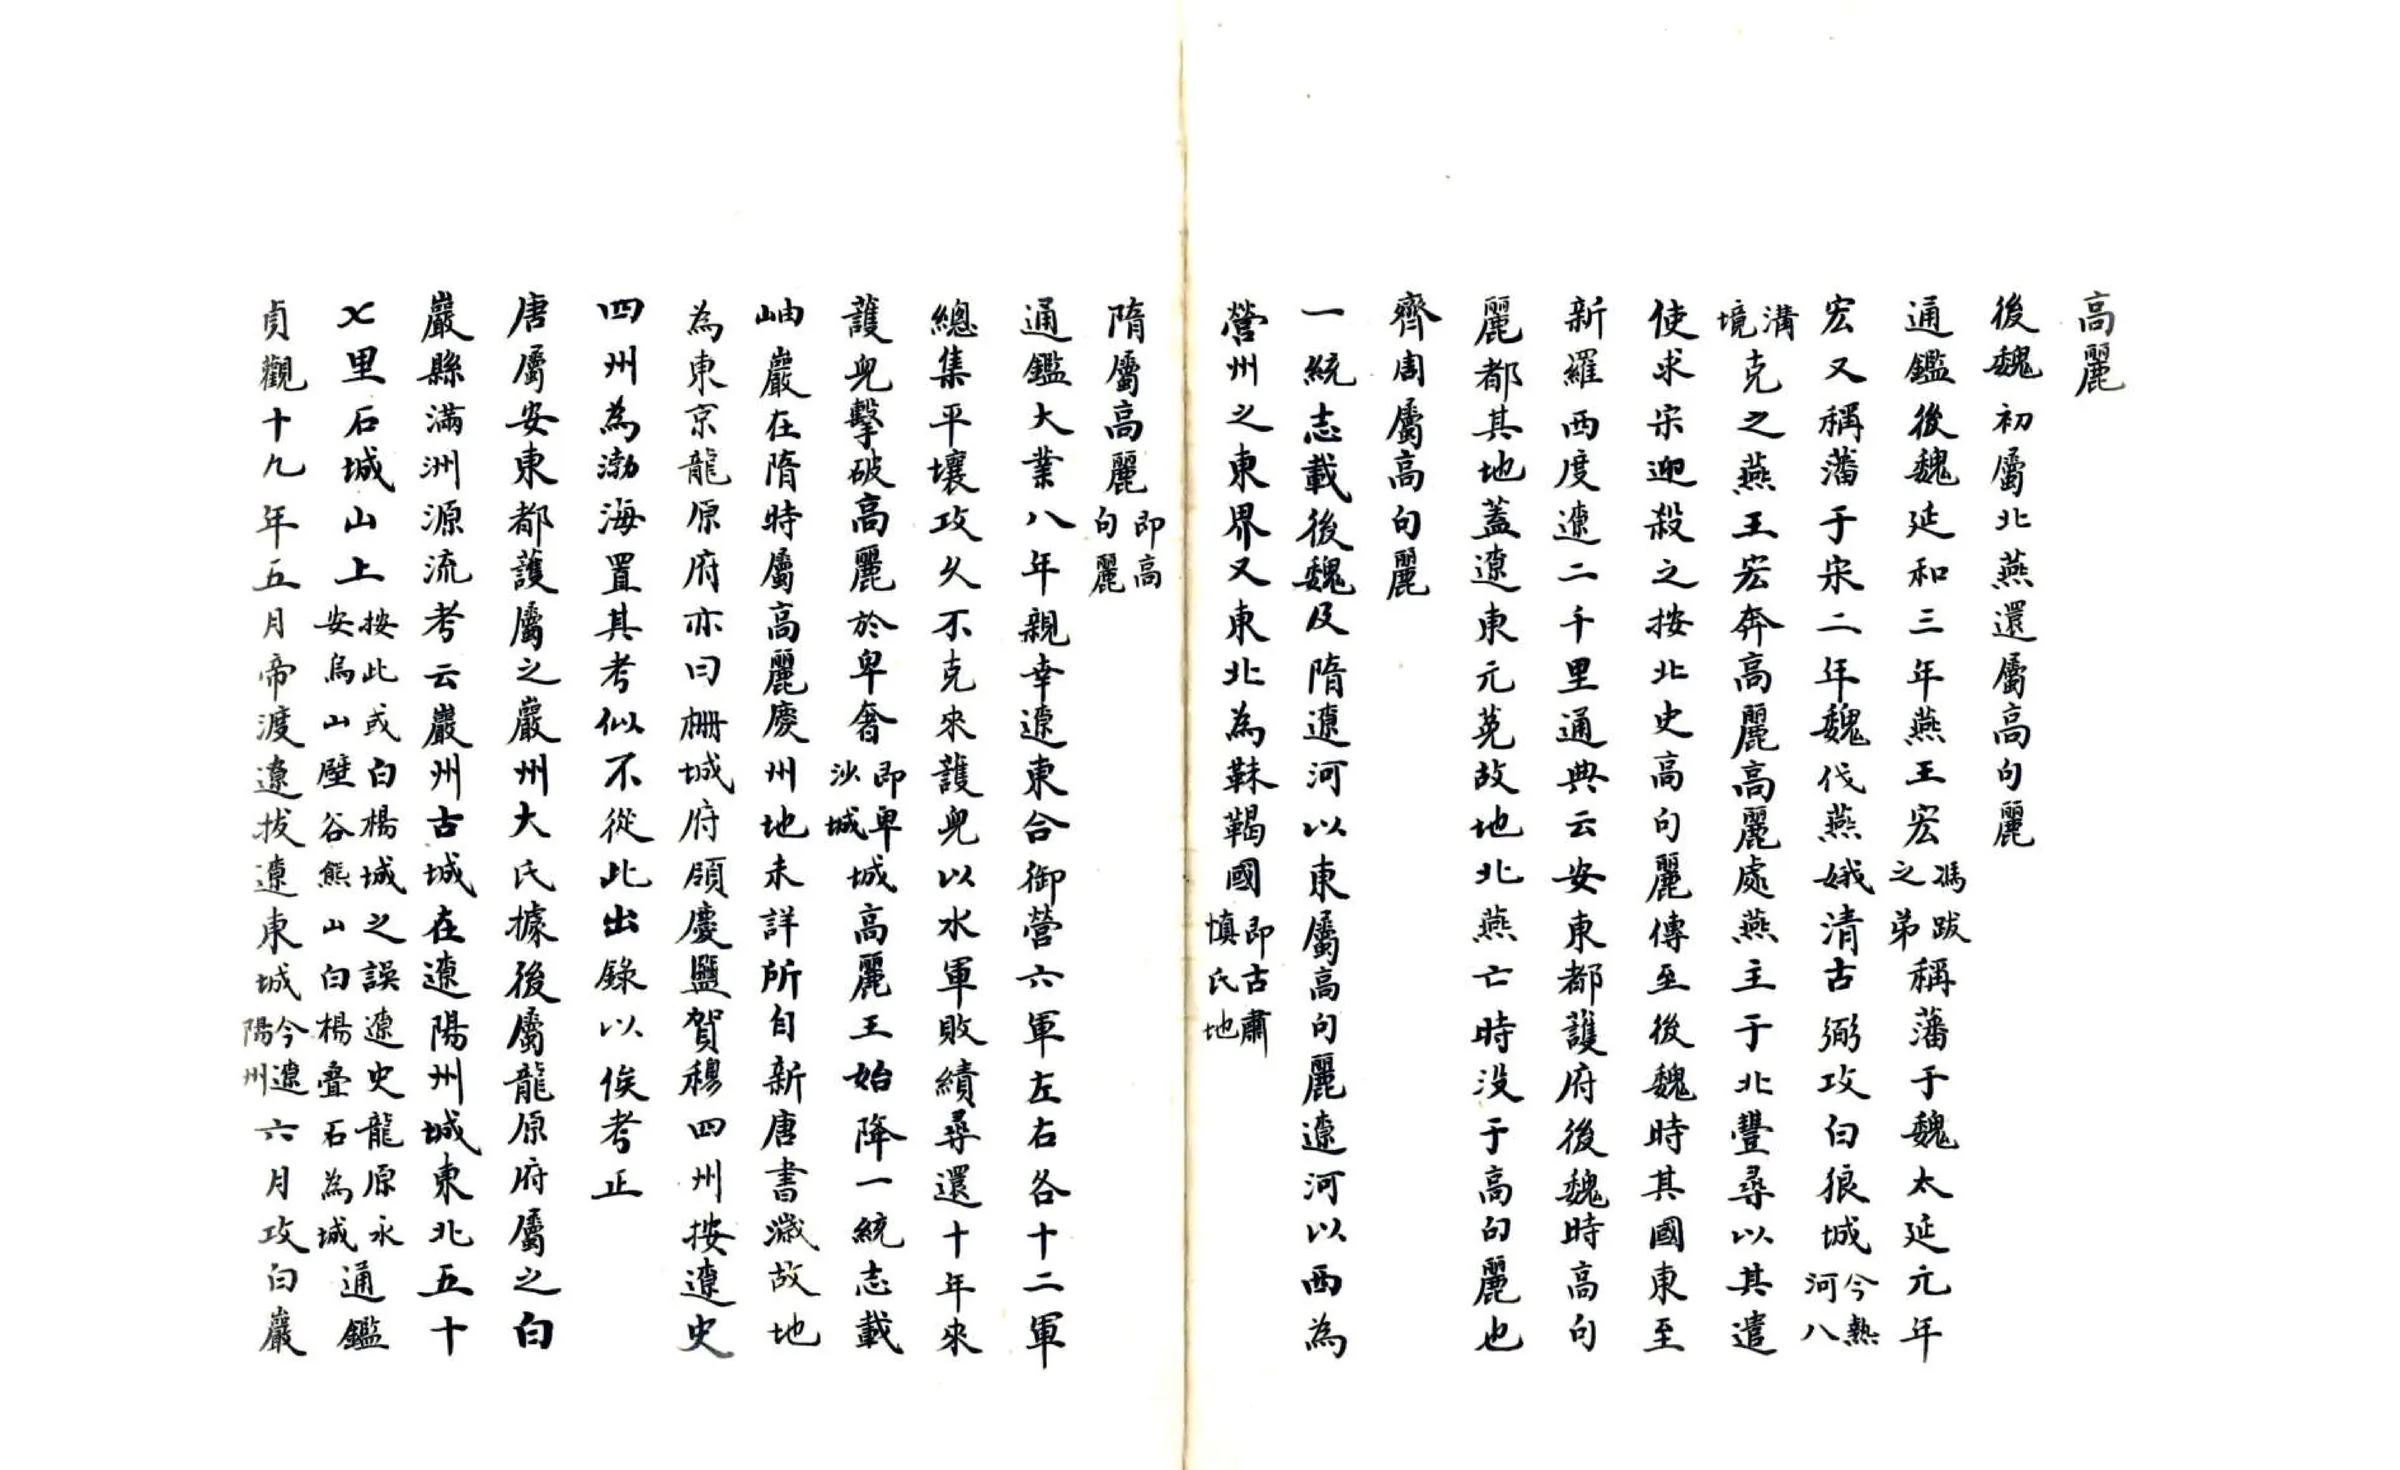 高麗
後魏初屬北燕還屬高句麗
通鑑後魏延和三年燕王宏馮跋之弟稱藩于魏太延元年
宏又稱藩于宋二年魏伐燕娥清古弼攻白狼城今熱河八
溝境克之燕王宏奔高麗高麗處燕主于北豐尋以其遣
使求宋迎殺之按北史高句麗傳至後魏時其國東至
新羅西度遼二千里通典云安東都護府後魏時高句
麗都其地蓋遼東元菟故地北燕亡時没于高句麗也
齊周屬高句麗
一統志載後魏及隋遼河以東屬高句麗遼河以西為
營州之東界又東北為靺鞨國即古肅慎氏地
隋屬高麗即高句麗
通鑑大業八年親幸遼東合御營六軍左右各十二軍
總集平壤攻久不克來護兒以水軍敗績尋還十年來
護兒擊破高麗於卑奢即卑沙城城高麗王始降一統志載
岫巖在隋時屬高麗慶州地未詳所自新唐書濊故地
為東京龍原府亦曰柵城府領慶鹽賀穆四州按遼史
四州為渤海置其考似不從此出錄以俟考正
唐屬安東都護屬之巖州大氏據後屬龍原府屬之白
巖縣滿洲源流考云巖州古城在遼陽州城東北五十
七里石城山上按此或白楊城之誤遼史龍原永安烏山壁谷熊山白楊疊石為城通鑑
貞觀十九年五月帝渡遼拔遼東城今遼陽州六月攻白巖